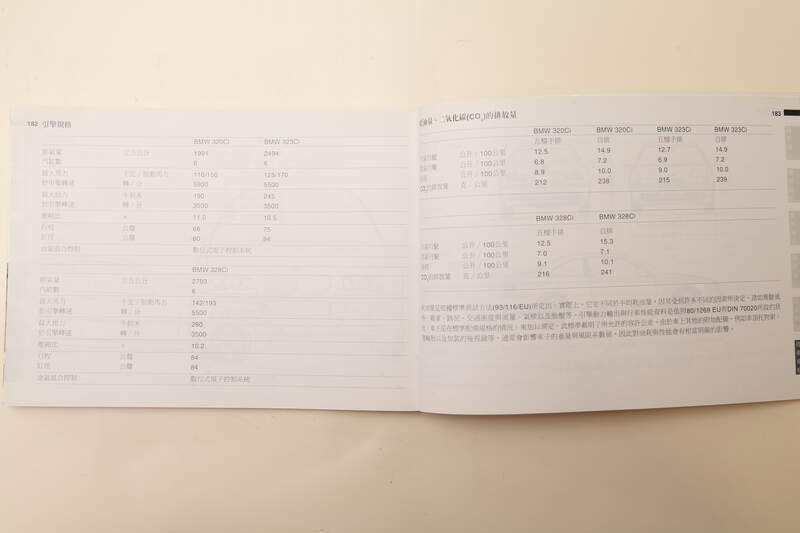 182 引擎規格
BMW 320Ci BMW 323Ci
排氣量 立方公分 1991 2494
汽缸數 6 6
最大馬力 千瓦／制動馬力 110/150 125/170
於引擎轉速 轉／分 5900 5500
最大扭力 牛頓米 190 245
於引擎轉速 轉／分 3500 3500
壓縮比 11.0 10.5
行程 公釐 66 75
缸徑 公釐 80 84
油氣混合控制 數位式電子控制系統
BMW 328Ci
排氣量 立方公分 2793
汽缸數 6
最大馬力 千瓦／制動馬力 142/193
於引擎轉速 轉／分 5500
最大扭力 牛頓米 280
於引擎轉速 轉／分 3500
壓縮比 10.2
行程 公釐 84
缸徑 公釐 84
油氣混合控制 數位式電子控制系統
油量、二氧化碳(CO2)的排放量 183
BMW 320Ci BMW 320Ci BMW 323Ci BMW 323Ci
五檔手排 自排 五檔手排 自排
公升／100公里 12.5 14.9 12.7 14.9
公升／100公里 6.8 7.2 6.9 7.2
公升／100公里 8.9 10.0 9.0 10.0
CO2的排放量 克／公里 212 238 215 239
BMW 328Ci BMW 328Ci
五檔手排 自排
公升／100公里 12.5 15.3
公升／100公里 7.0 7.1
公升／100公里 9.1 10.1
CO2的排放量 克／公里 216 241
標準測試方法(93/116/EU)所定出。實際上，它並不同於平均耗油量，因其受到許多不同的因素所決定，諸如駕駛風
載重、路況、交通密度與流量、氣候以及胎壓等。引擎動力輸出與行車性能資料是依照80/1269 EU和DIN 70020所設的
車子是在標準配備規格的情況）來加以測定。此標準載明了所允許的容許公差。由於車上其他的附加配備，例如車頂托物架、
以及包裝的後視鏡等，通常會影響車子的重量與風阻系數值，因此對油耗與性能會有相當明顯的影響。